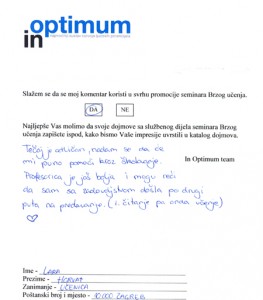 in optimum
Slažem se da se moj komentar koristi u svrhu promocije seminara Brzog učenja.
DA NE
Najljepše Vas molimo da svoje dojmove sa službenog dijela seminara Brzog
učenja zapišete ispod, kako bismo Vaše impresije uvrstili u katalog dojmova.
Tečaj je odličan, nadam se da će
mi puno pomoći kroz školovanje.
In Optimum team
Profesorica je još bolja i mogu reći
da sam sa zadovoljstvom došla po drugi
puta na predavanje. (i. čitanje po
Ime - LARA
Prezime - HORVAT
Zanimanje - UČENICA
Poštanski broj i mjesto - 10.000 ZAGREB